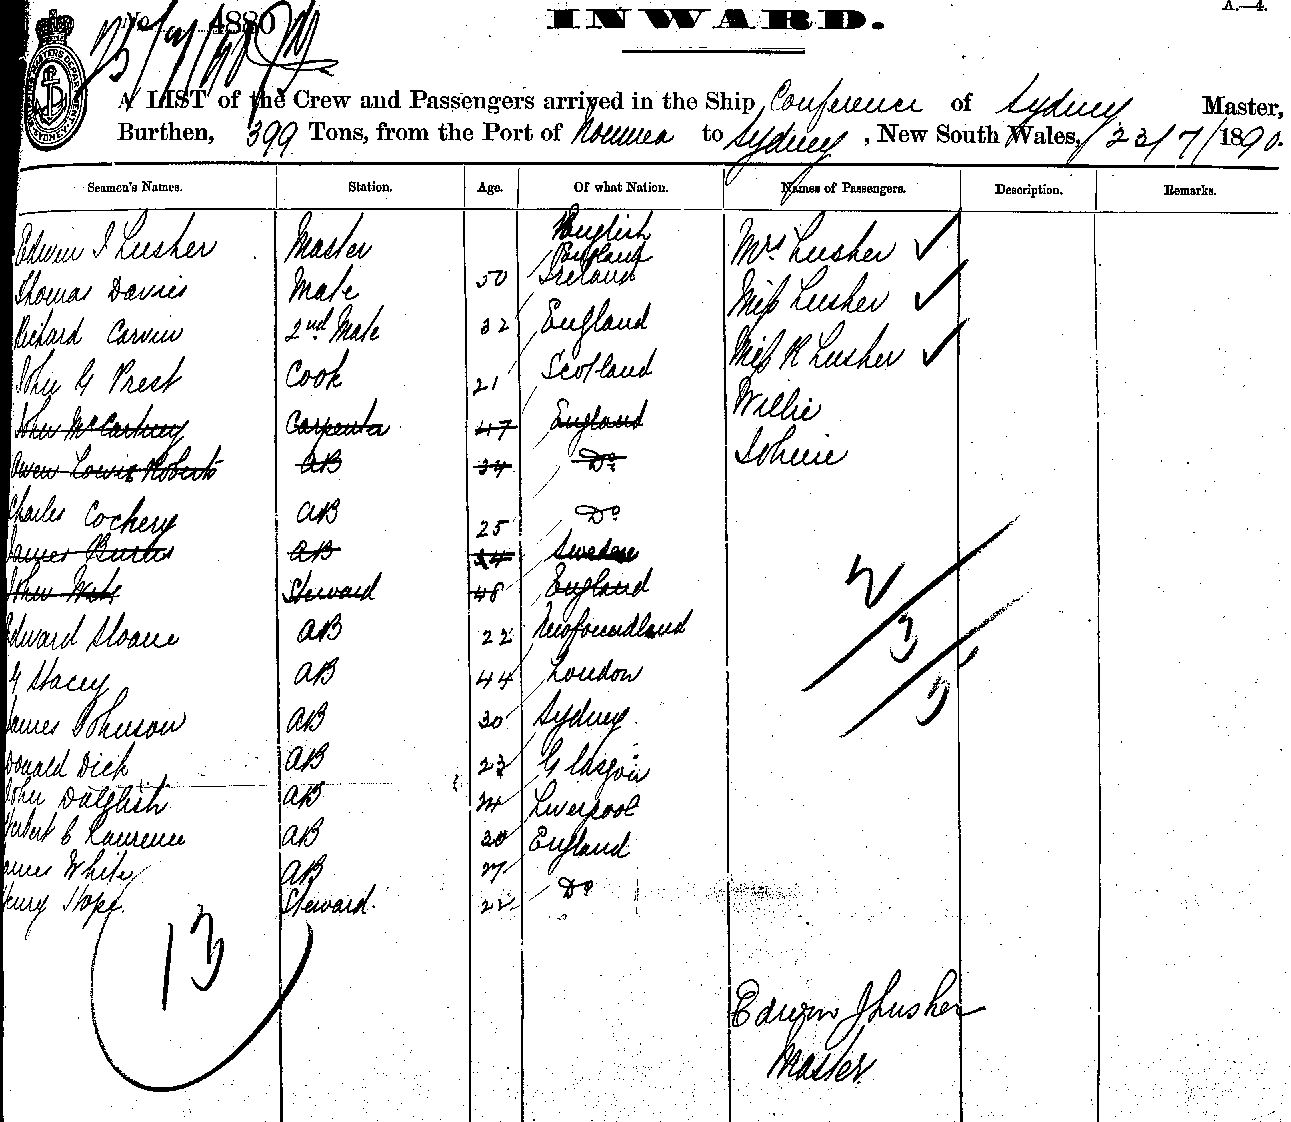 No. 4880
INWARD.
A.—4.
A LIST of the Crew and Passengers arrived in the Ship Conference of Sydney Master,
Burthen, 399 Tons, from the Port of Noumea to Sydney, New South Wales, 23/7/1890.
Seamen's Names. Station. Age. Of what Nation. Names of Passengers. Description. Remarks.
English
Edwin J Lusher Master England Mrs Lusher ✓
Thomas Davies Mate 50 Ireland Miss Lusher ✓
Richard Carvin 2nd Mate 32 England Miss K Lusher ✓
John G Prest Cook 21 Scotland Willie
John McCartney Carpenter 47 England Johnie
Owen Lewis Roberts AB 34 Do
Charles Cochery AB 25 Do
James AB 24 Sweden
John Steward 48 England
Edward Sloane AB 22 Newfoundland
G Stacey AB 44 London
James Johnson AB 30 Sydney
Donald Dick AB 23 Glasgow
John Dalglish AB 24 Liverpool
Herbert C Laurence AB 20 England
James White AB 27
Henry Hope. Steward. 22 Do
2
3
5
13
Edwin J Lusher
Master